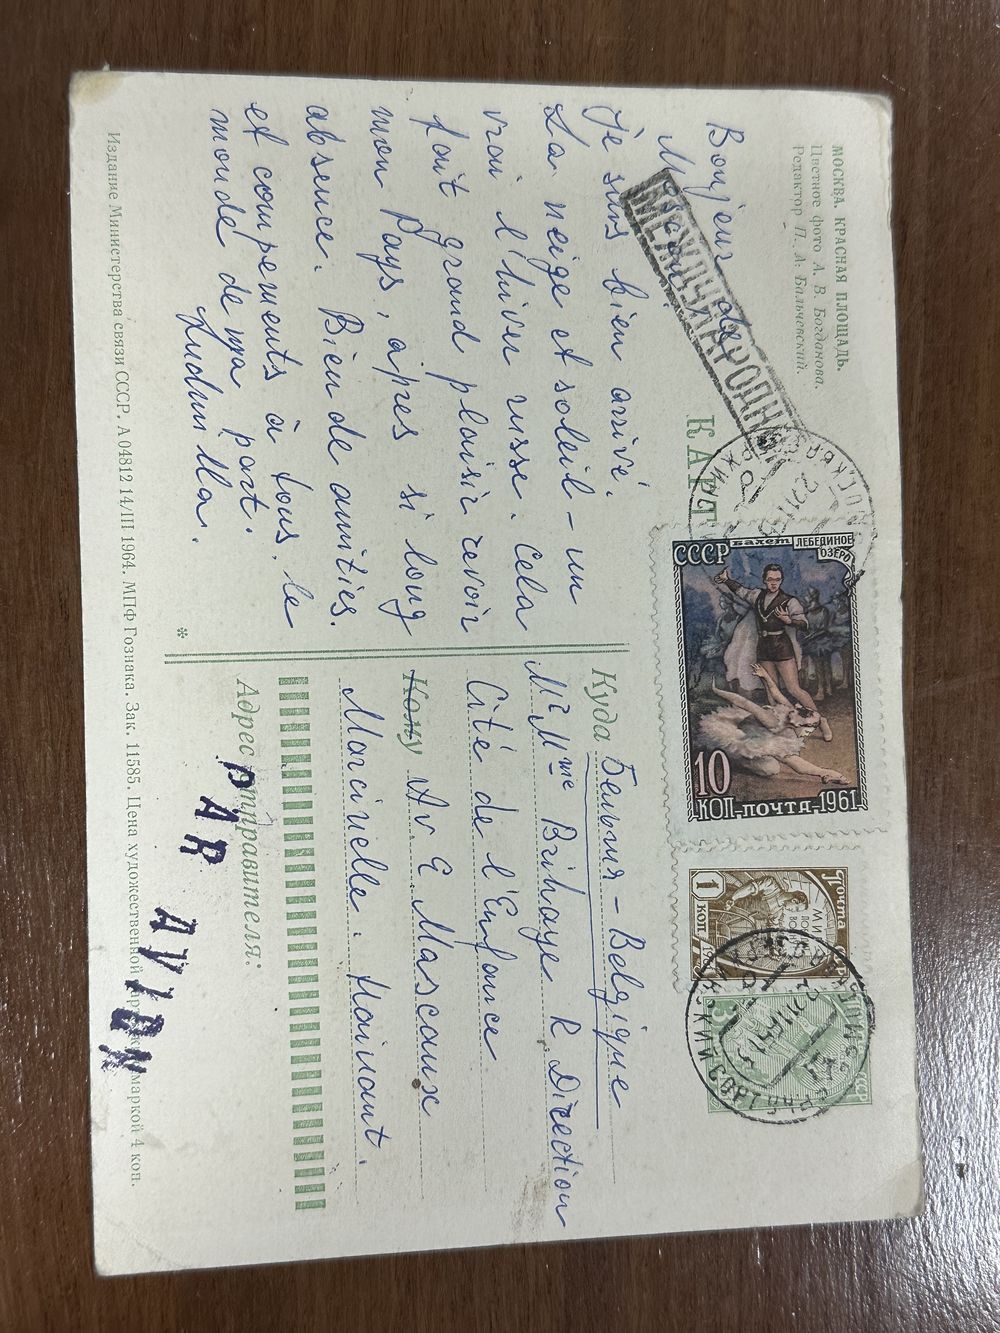 МОСКВА. КРАСНАЯ ПЛОЩАДЬ.
Цветное фото А. В. Богданова.
Редактор П. А. Бальчевский.
КАРТ
МЕЖДУНАРОДН
СССР
балет ЛЕБЕДИНОЕ
ОЗЕРО
10
КОП-ПОЧТА-1961
Почта
1
коп
Bonjour de
Moscou
Je suis bien arrivé.
La neige et soleil - un
vrai l'hiver russe. Cela
fait grand plaisir revoir
mon Pays, apres si long
absence. Bien de amitiés.
et compements à tous. le
monde de ma part.
Ludmilla.
Куда Бельгия - Belgique
Mr Mme Brihaye R Direction
Cité de l'Enfance
Кому Av E Mascaux
Marcinelle. Hainaut.
Адрес отправителя:
PAR AVION
*
Издание Министерства связи СССР. А 04812 14/III 1964. МПФ Гознака. Зак. 11585. Цена художественной карточки с маркой 4 коп.